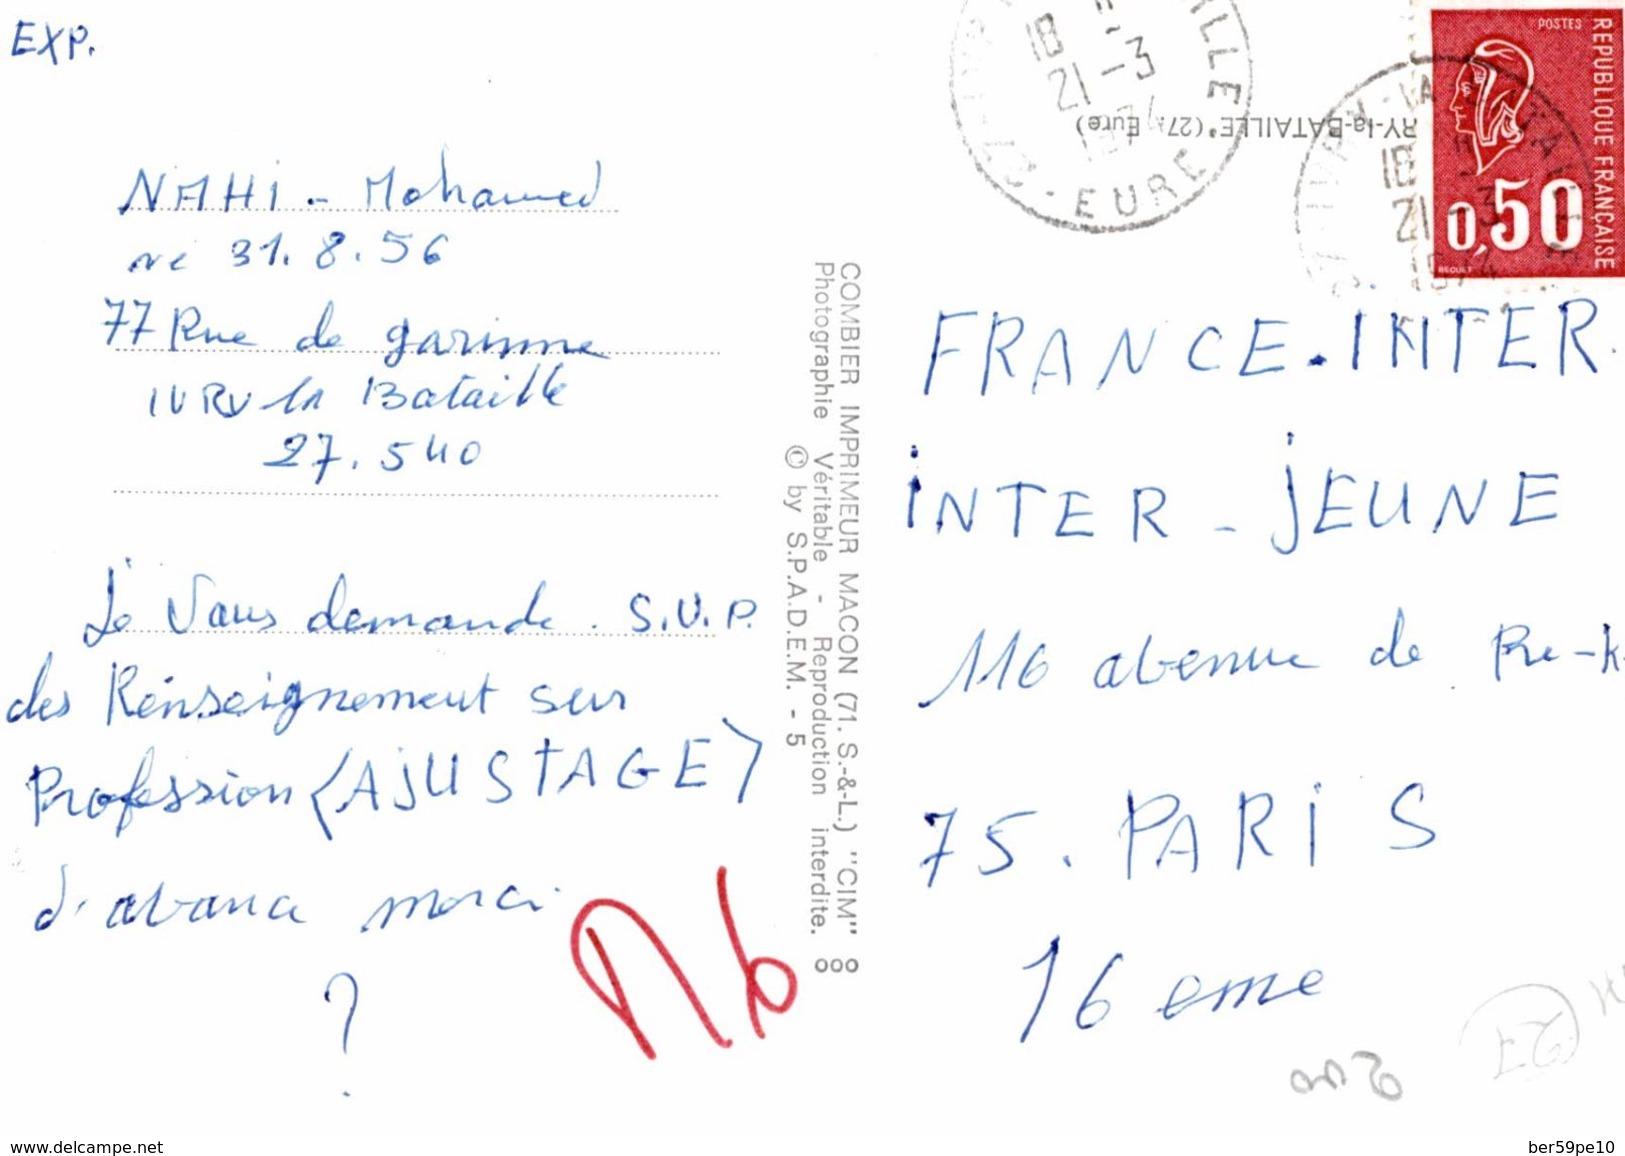 EXP.
NAHI - Mohamed
né 31.8.56
77 Rue de garinne
IVRY la Bataille
27.540
Je Vous demande. S.V.P.
des Renseignement sur
Profession (AJUSTAGE)
d'avance merci
?
COMBIER IMPRIMEUR MACON (71. S.-&-L.) "CIM"
Photographie Véritable - Reproduction interdite.
© by S.P.A.D.E.M. - 5
RY-la-BATAILLE (27. Eure)
18 H
21 -3
1974
EURE
18 H
21 -3
1974
POSTES
REPUBLIQUE FRANÇAISE
0,50
BEQUET
FRANCE.INTER.
iNTER - jEUNE
116 avenue de Pre-k
75. PARiS
16 eme
www.delcampe.net
ber59pe10